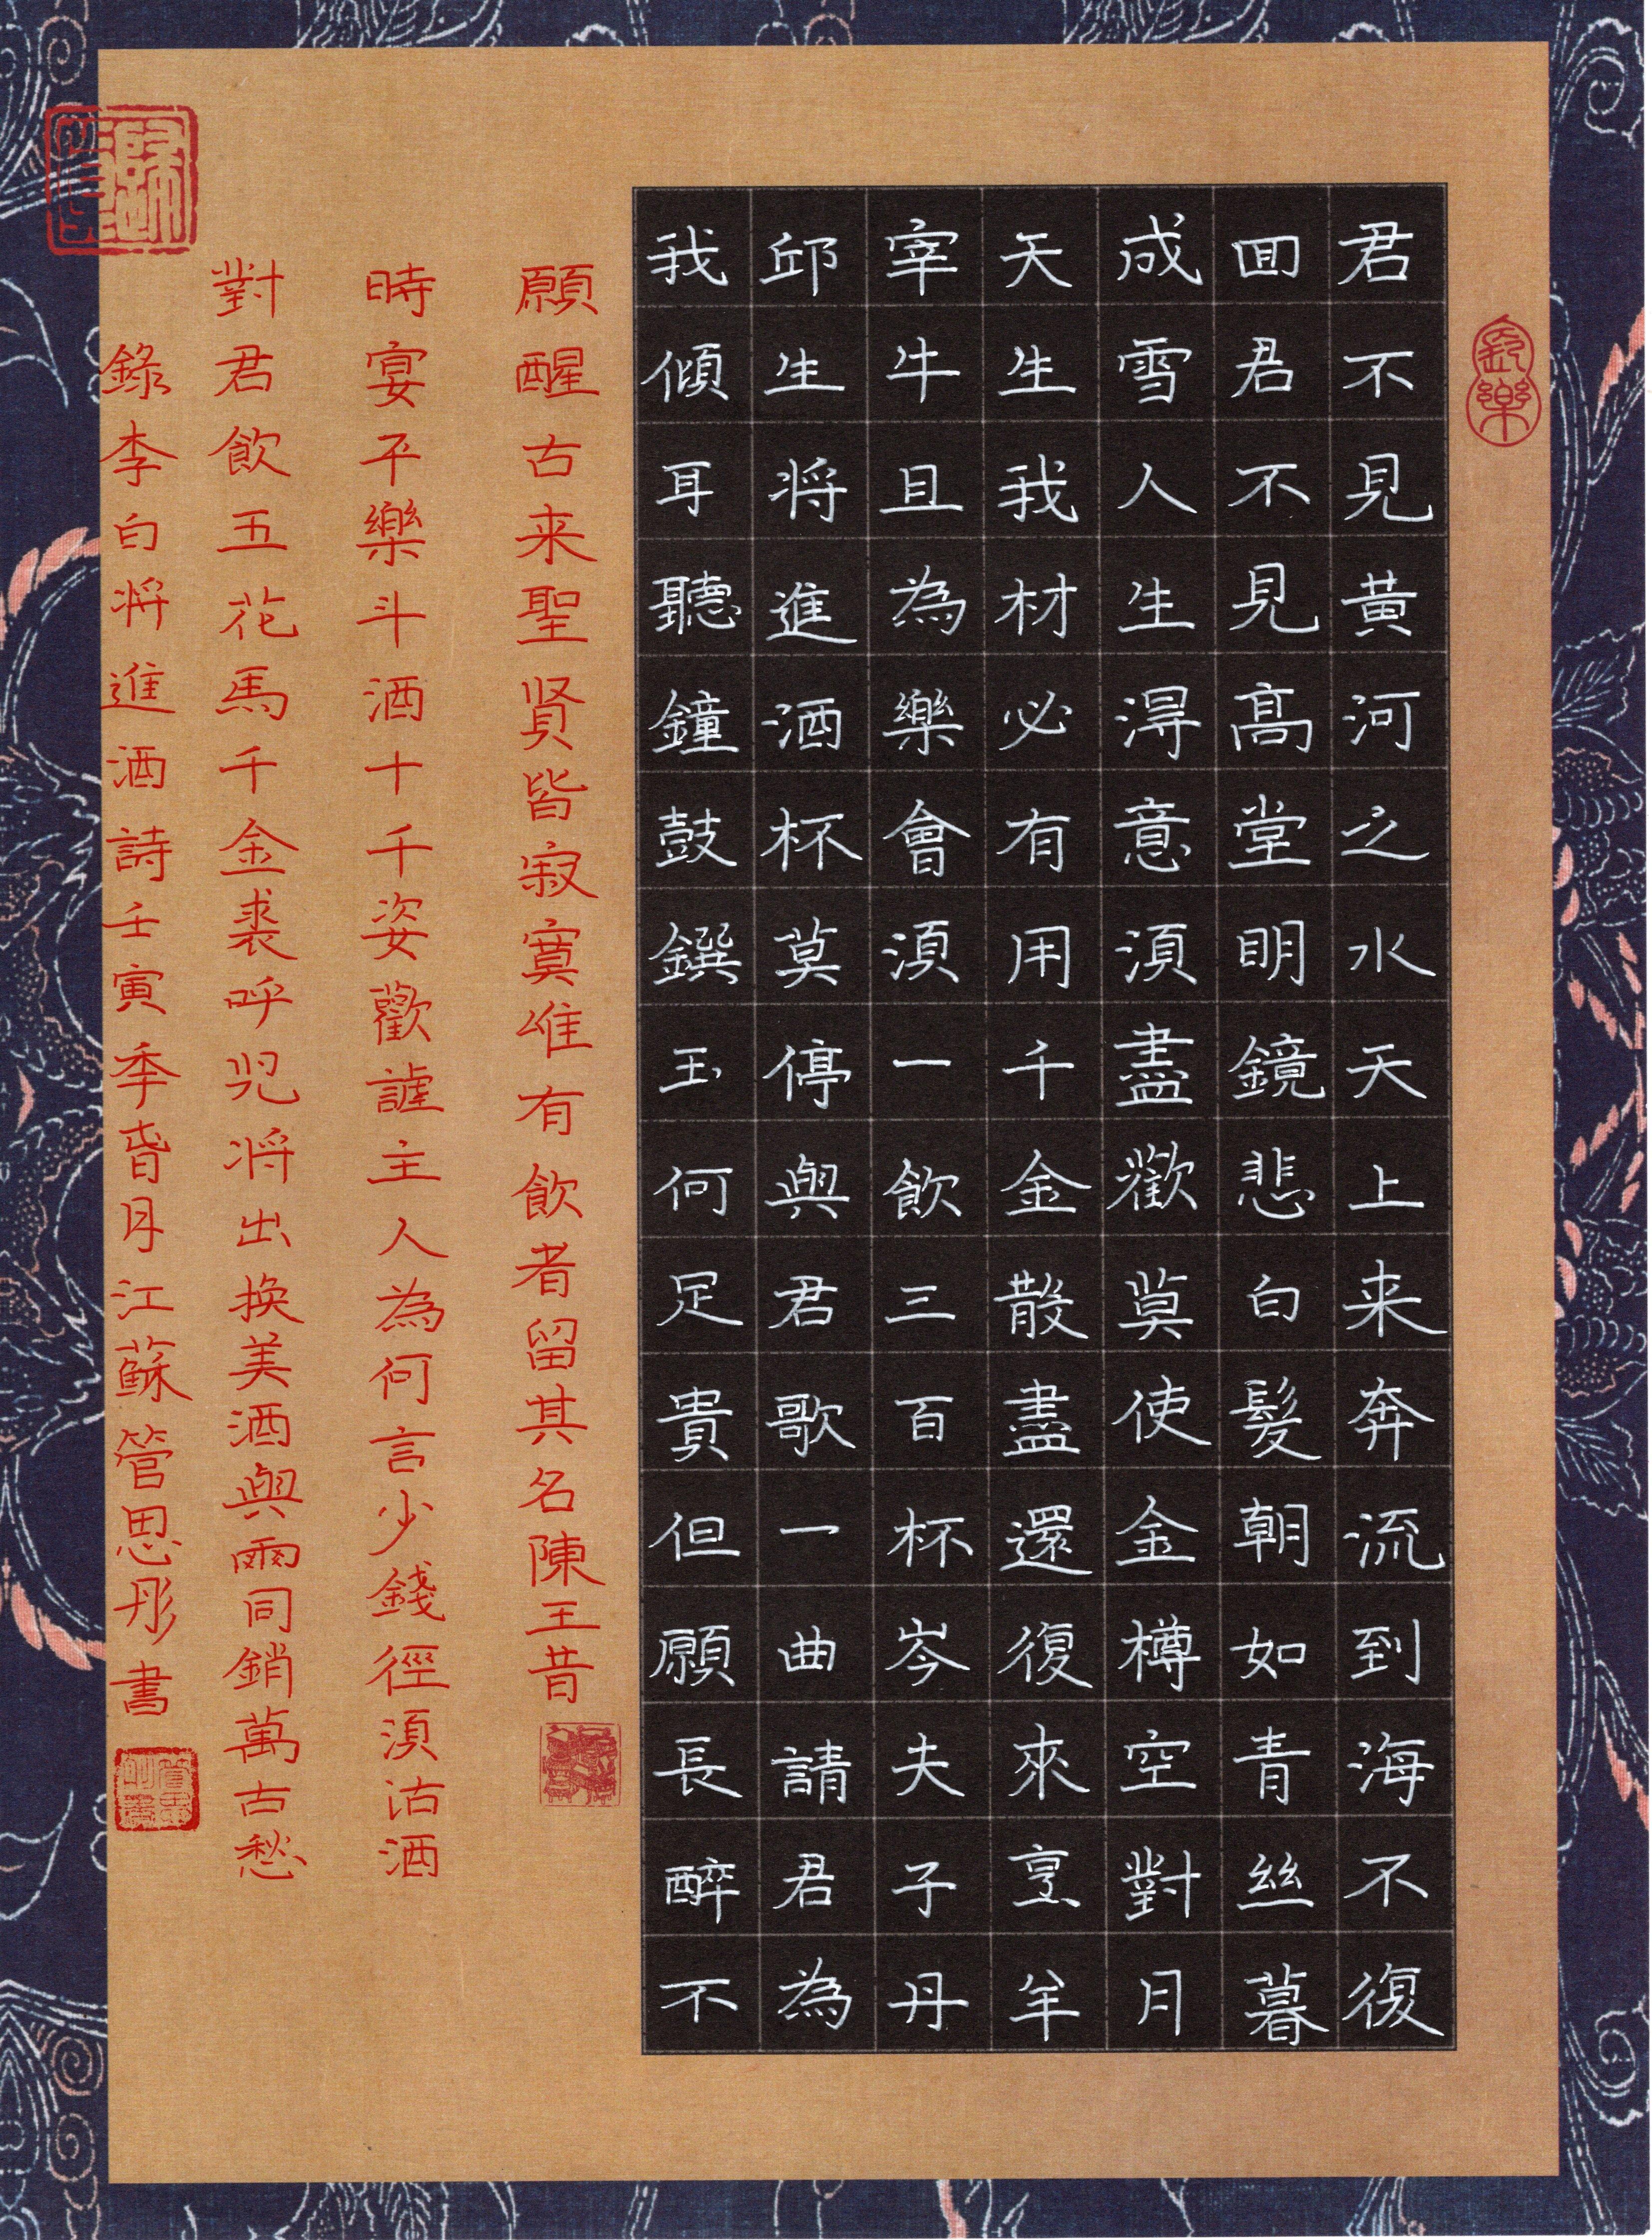 君不見黄河之水天上来奔流到海不復
回君不見高堂明鏡悲白髮朝如青絲暮
成雪人生得意須盡歡莫使金樽空對月
天生我材必有用千金散盡還復來烹羊
宰牛且為樂會須一飲三百杯岑夫子丹
邱生将進酒杯莫停與君歌一曲請君為
我傾耳聽鐘鼓饌玉何足貴但願長醉不
願醒古来聖贤皆寂寞唯有飲者留其名陳王昔
時宴平樂斗酒十千恣歡謔主人為何言少錢徑須沽酒
對君飲五花馬千金裘呼児将出換美酒與爾同銷萬古愁
錄李白将進酒詩壬寅季春月江蘇管思彤書